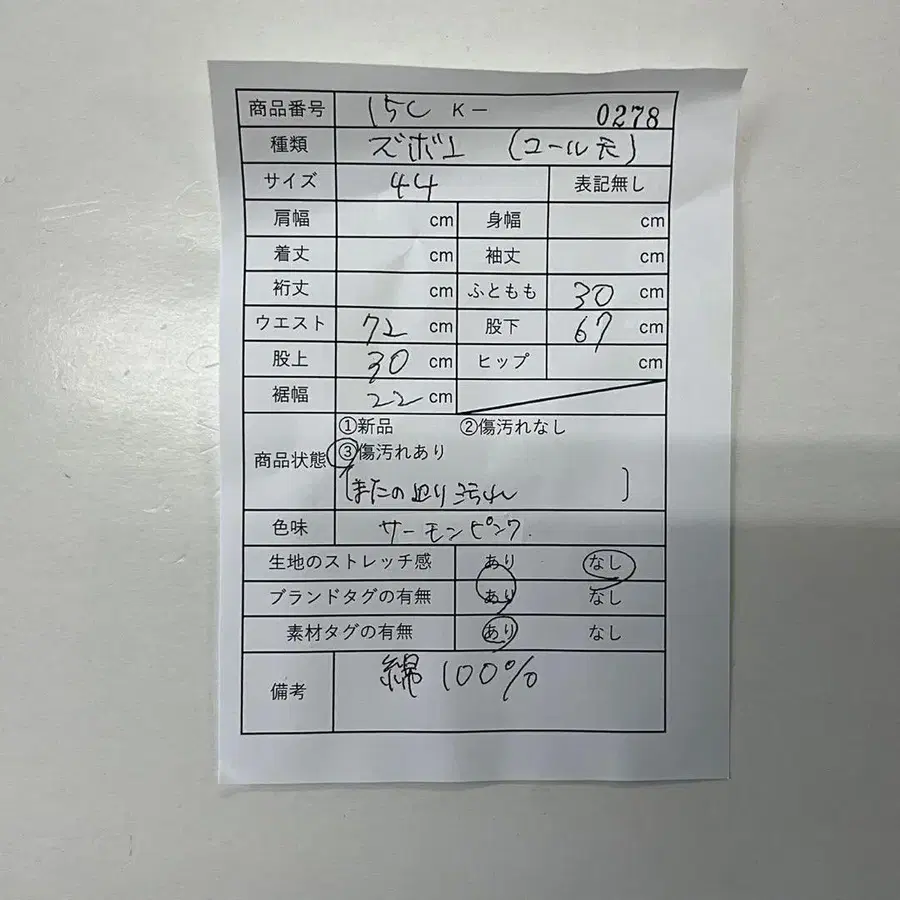 商品番号 15C K- 0278
種類 ズボン (コール天)
サイズ 44 表記無し
肩幅 cm 身幅 cm
着丈 cm 袖丈 cm
裄丈 cm ふともも 30 cm
ウエスト 72 cm 股下 67 cm
股上 30 cm ヒップ cm
裾幅 22 cm
①新品 ②傷汚れなし
商品状態 ③傷汚れあり
(またの辺り汚れ )
色味 サーモンピンク.
生地のストレッチ感 あり なし
ブランドタグの有無 あり なし
素材タグの有無 あり なし
備考 綿 100%